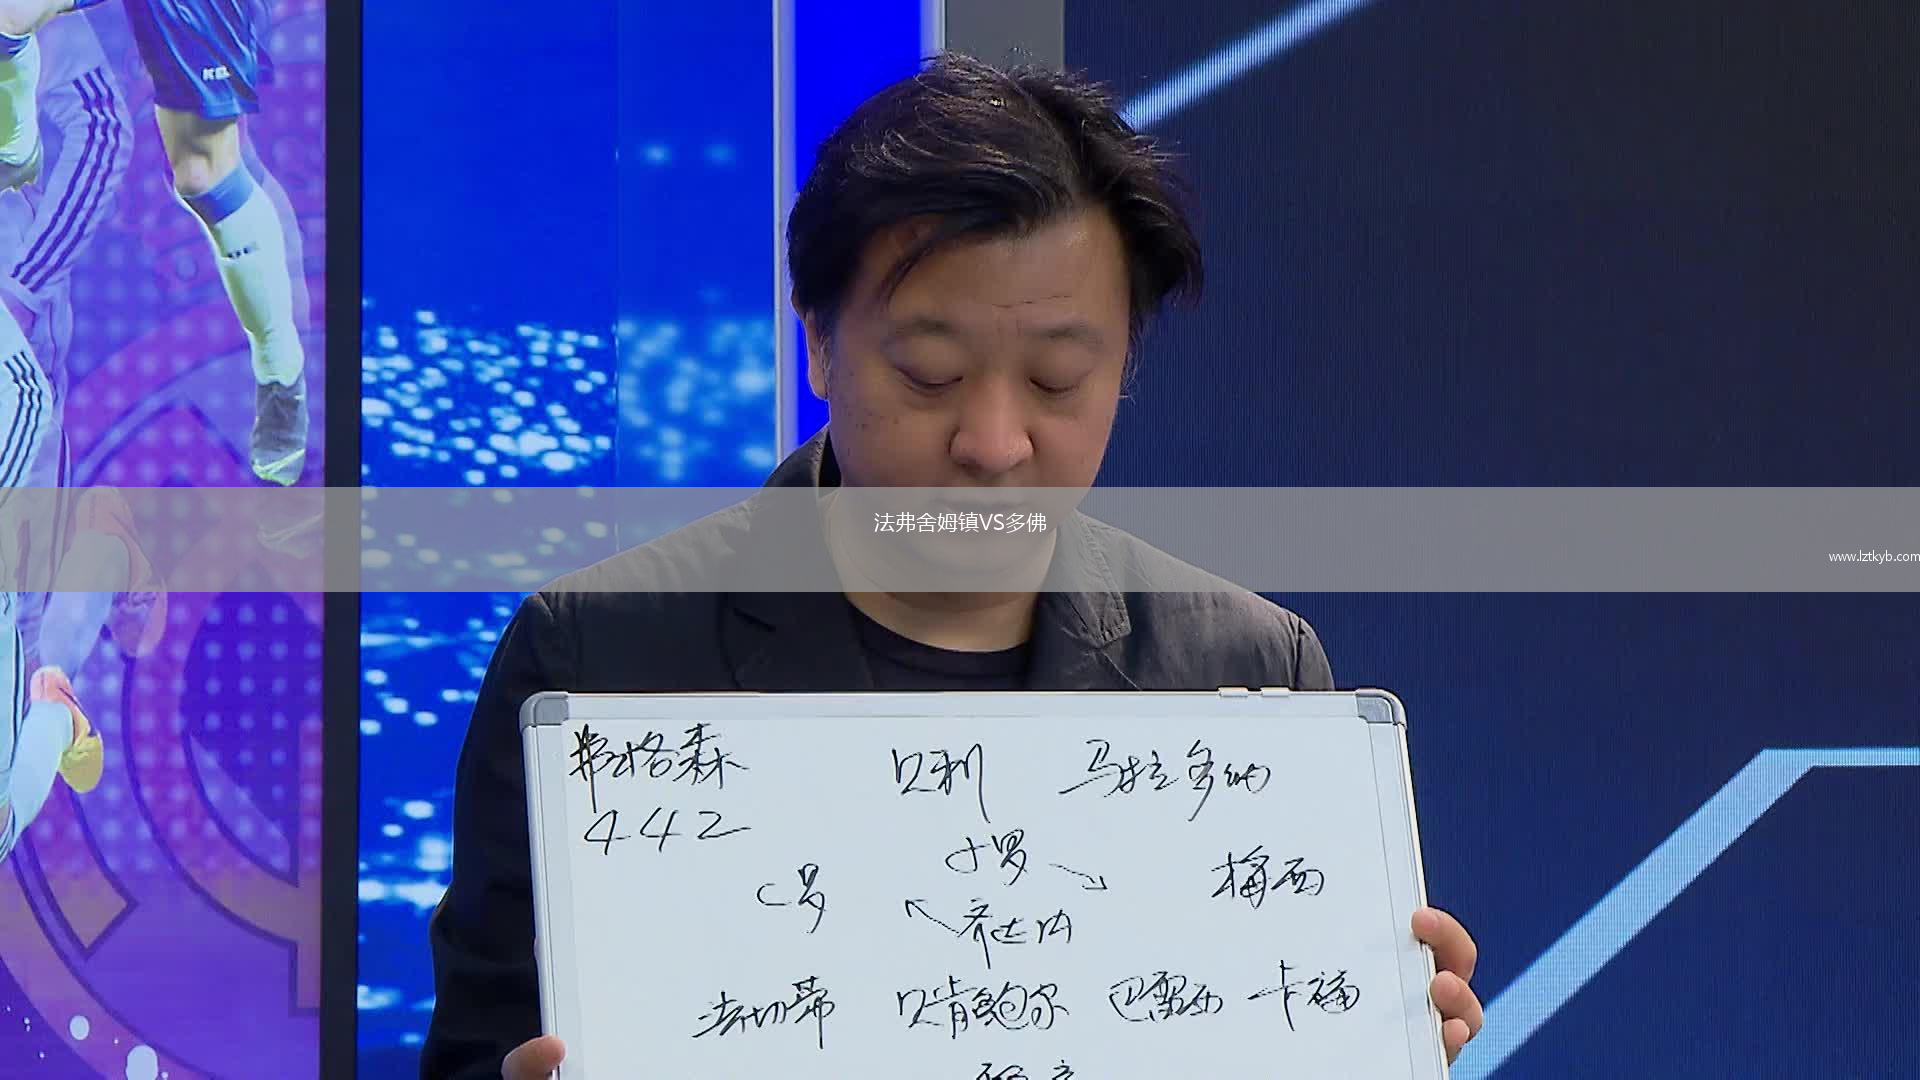 KEL
法弗舍姆镇VS多佛
www.lztkyb.com
弗格森 贝利 马拉多纳
442
小罗
C罗 梅西
齐达内
法切蒂 贝肯鲍尔 巴雷西 卡福